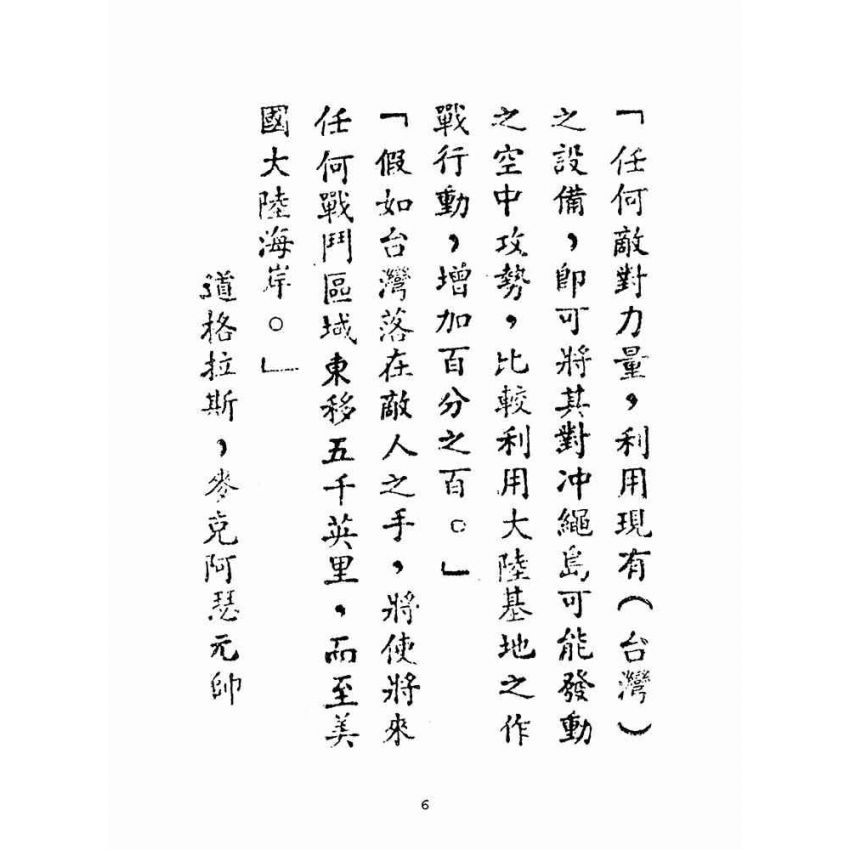 「任何敵對力量，利用現有（台灣）
之設備，即可將其對冲繩島可能發動
之空中攻勢，比較利用大陸基地之作
戰行動，增加百分之百。」
「假如台灣落在敵人之手，將使將來
任何戰鬥區域東移五千英里，而至美
國大陸海岸。」
道格拉斯，麥克阿瑟元帥
6